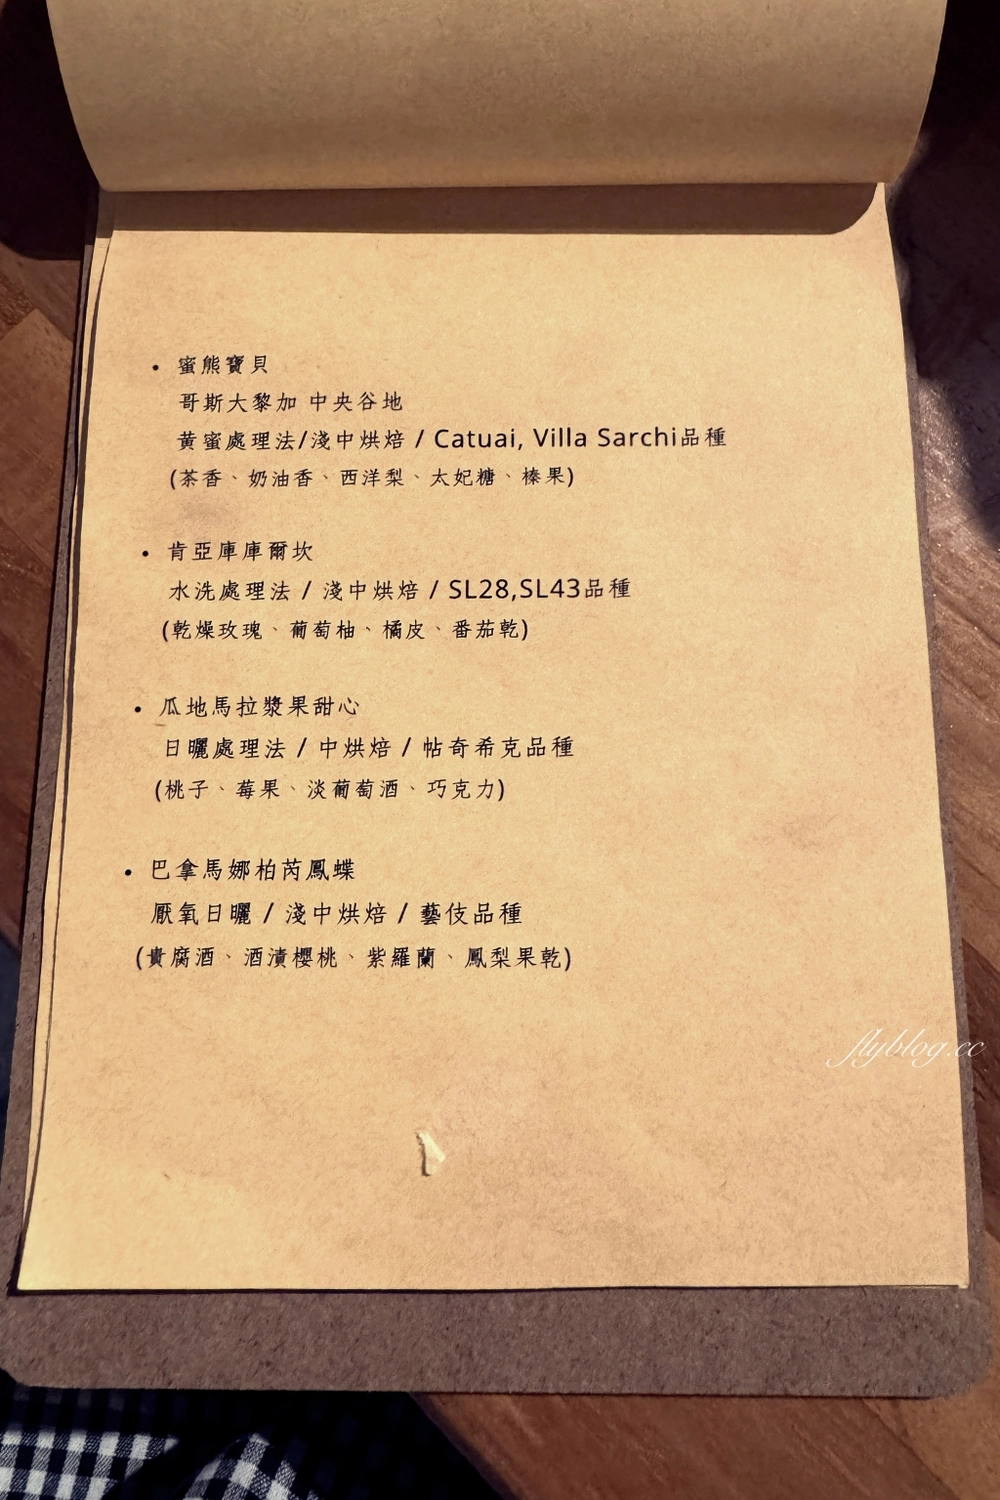 • 蜜熊寶貝
哥斯大黎加 中央谷地
黃蜜處理法/淺中烘焙 / Catuai, Villa Sarchi品種
(茶香、奶油香、西洋梨、太妃糖、榛果)
• 肯亞庫庫爾坎
水洗處理法 / 淺中烘焙 / SL28,SL43品種
(乾燥玫瑰、葡萄柚、橘皮、番茄乾)
• 瓜地馬拉漿果甜心
日曬處理法 / 中烘焙 / 帖奇希克品種
(桃子、莓果、淡葡萄酒、巧克力)
• 巴拿馬娜柏芮鳳蝶
厭氧日曬 / 淺中烘焙 / 藝伎品種
(貴腐酒、酒漬櫻桃、紫羅蘭、鳳梨果乾)
flyblog.cc